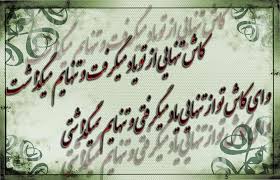 کاش تنهایی از تو یاد میگرفت و تنهایم میگذاشت
وای کاش تو از تنهایی یاد میگرفتی و تنهایم نمیگذاشتی